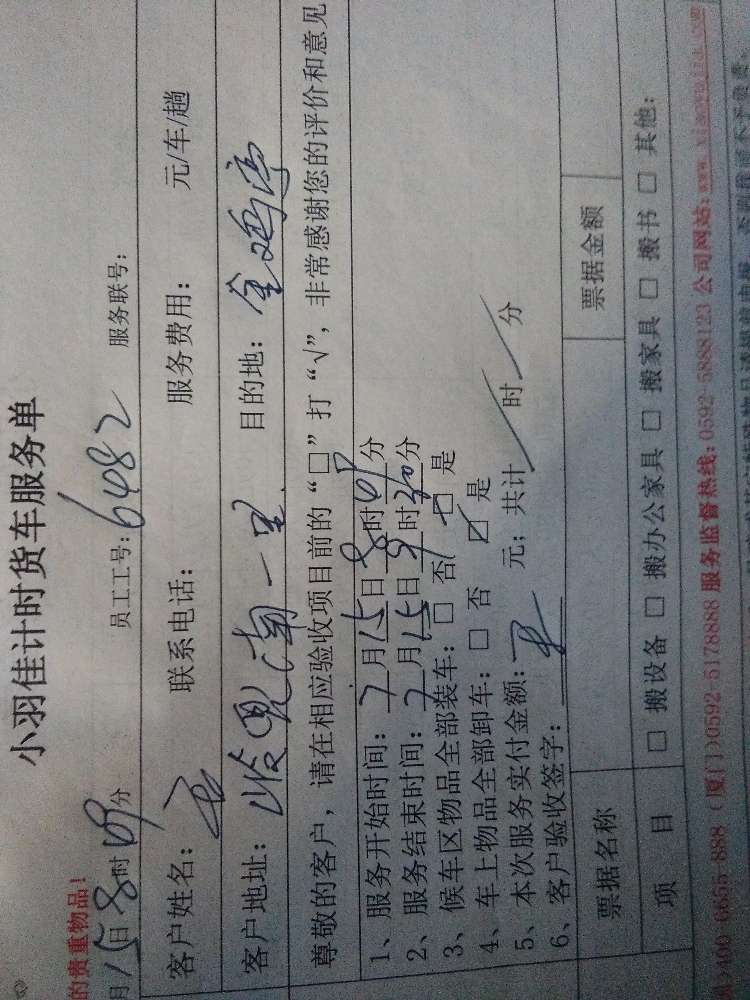 小羽佳计时货车服务单
的贵重物品!
月15日8时09分 员工工号: 6482 服务联号:
客户姓名: 王 联系电话: 服务费用: 元/车/趟
客户地址: 岭兜南一里 目的地: 金鸡亭
尊敬的客户, 请在相应验收项目前的“□”打“√”, 非常感谢您的评价和意见
1、服务开始时间: 7月15日8时09分
2、服务结束时间: 7月15日9时30分
3、候车区物品全部装车: □ 否 ☑ 是
4、车上物品全部卸车: □ 否 ☑ 是
5、本次服务实付金额: 元; 共计 时 分
6、客户验收签字:
票据名称 票据金额
项 目 □ 搬设备 □ 搬办公家具 □ 搬家具 □ 搬书 □ 其他:
)400-6655-888 (厦门)0592-5178888 服务监督热线:0592-5888123 公司网站: